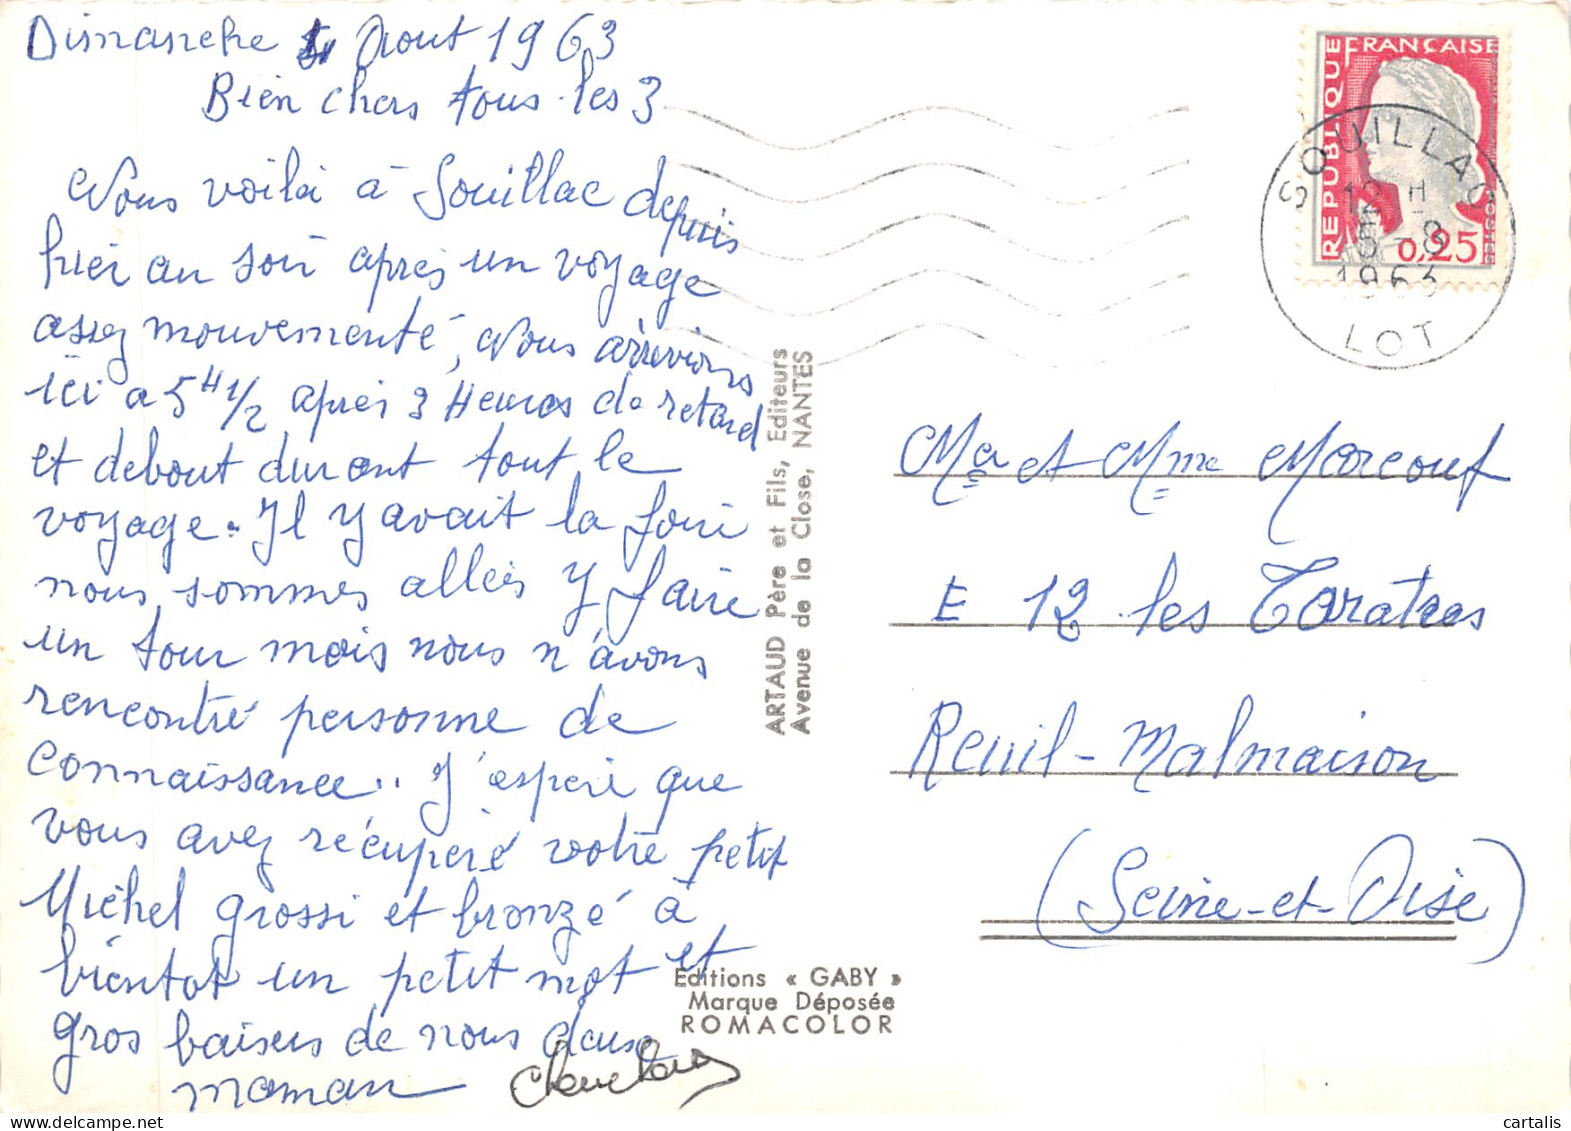 Dimanche 4 Aout 1963
Bien chers tous les 3
Nous voilà à Souillac depuis
hier au soir après un voyage
assez mouvementé, Nous arrivions
ici a 5H 1/2 après 3 Heures de retard
et debout durant tout le
voyage. Il y avait la foire
nous sommes allées y faire
un tour mais nous n'avons
rencontré personne de
connaissance.. J'espère que
vous avez récupéré votre petit
Michel grossi et bronzé à
bientot un petit mot et
gros baisers de nous deux
maman
ARTAUD Père et Fils, Editeurs
Avenue de la Close, NANTES
Editions « GABY »
Marque Déposée
ROMACOLOR
REPUBLIQUE FRANÇAISE
0,25
SOUILLAC
12 H
5 - 8
1963
LOT
Mr et Mme Marcouf
E 12 les
Reuil-Malmaison
(Seine-et-Oise)
cartalis